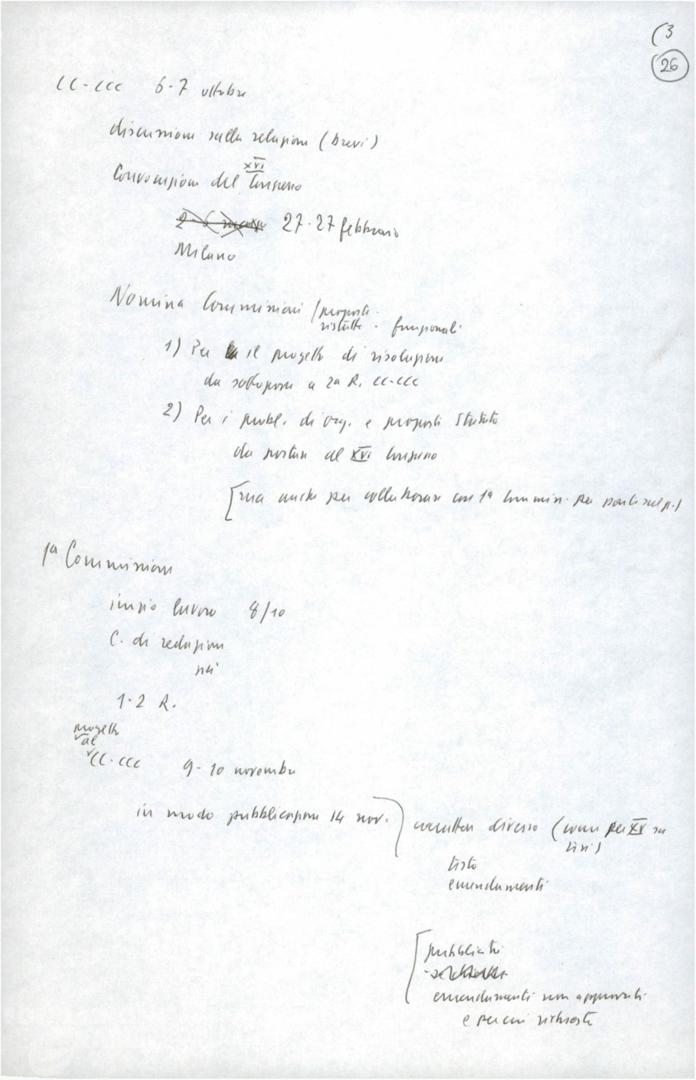 (3
26
CC-CCC 6-7 ottobre
discussione sulla relazione (brevi)
XVI
Convocazione del Congresso
27-27 febbraio
Milano
Nomina Commissioni / proposte
ristrette - funzionali
1) Per il progetto di risoluzione
da sottoporre a 2a R. CC-CCC
2) Per i probl. di org. e proposte Statuto
da portare al XVI Congresso
[ma anche per collaborare con 1ª Commiss. per parte sul p.)
1ª Commissione
inizio lavoro 8/10
C. di redazione
poi
1-2 R.
progetto
al
CC-CCC 9-10 novembre
in modo pubblicazione 14 nov.
carattere diverso (come per XV su
tesi)
testo
emendamenti
[pubblicati
emendamenti non approvati
e per cui richiesta